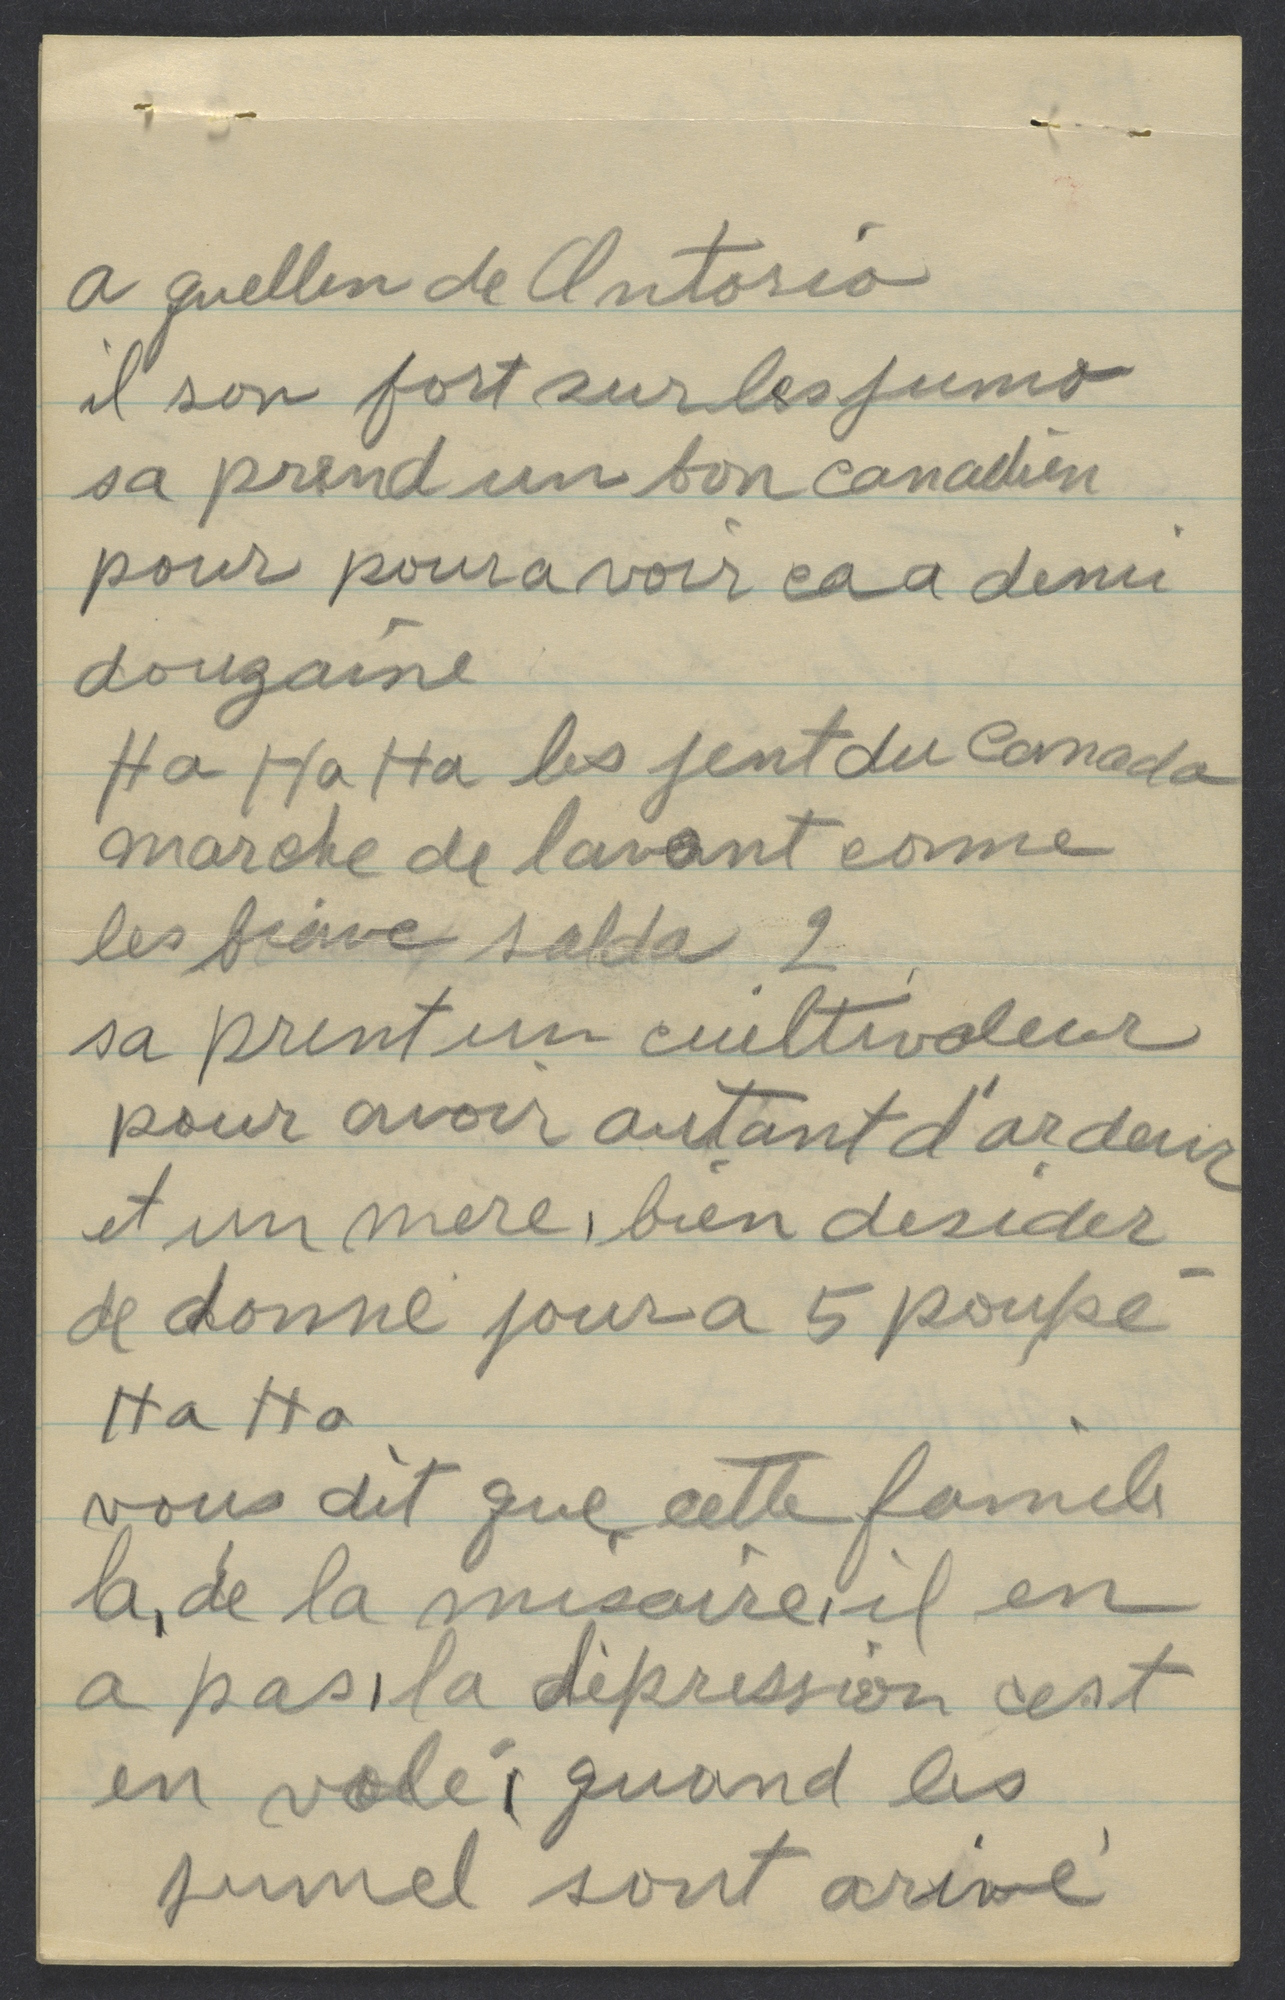 a quellen de Antorio
il son fort sur les jumo
sa prend un bon canadien
pour pouravoir ca a demi
dougaine
Ha Ha Ha les jent du Canada
marche de lavant comme
les brave salda 2
sa prent un cuiltivateur
pour avoir autant d'ardeur
et un mere, bien desider
de donne jour a 5 poupé
Ha Ha
vous dit que cette famile
la, de la misaire, il en
a pas, la dépression cest
en volé, quand les
jumel sont arivé